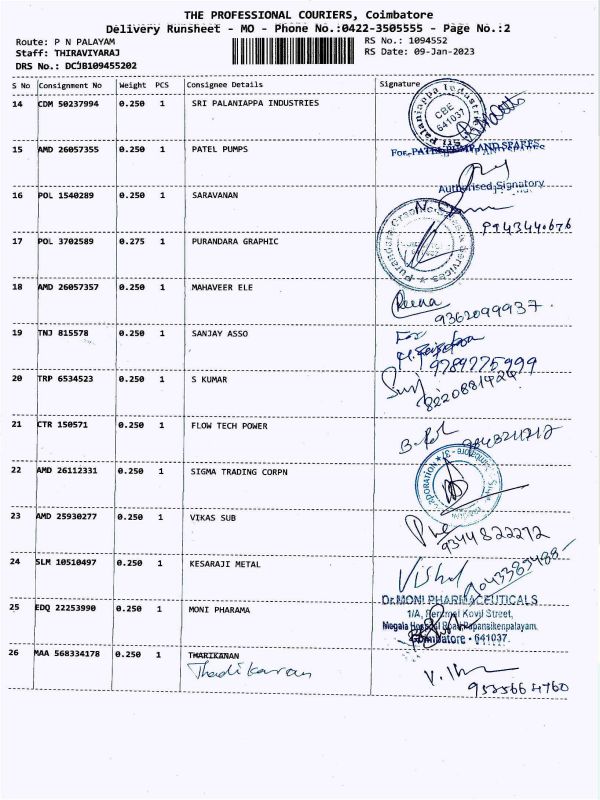 THE PROFESSIONAL COURIERS, Coimbatore
Delivery Runsheet - MO - Phone No.:0422-3505555 - Page No.:2
Route: P N PALAYAM RS No.: 1094552
Staff: THIRAVIYARAJ RS Date: 09-Jan-2023
DRS No.: DCJB109455202
S No Consignment No Weight PCS Consignee Details Signature
14 CDM 50237994 0.250 1 SRI PALANIAPPA INDUSTRIES
Sri Palaniappa Industries
CBE
641037
15 AMD 26057355 0.250 1 PATEL PUMPS
For PATEL PUMP AND SPARES
Authorised Signatory
16 POL 1540289 0.250 1 SARAVANAN
17 POL 3702589 0.275 1 PURANDARA GRAPHIC
18 AMD 26057357 0.250 1 MAHAVEER ELE
Reena
9362099937.
19 TNJ 815578 0.250 1 SANJAY ASSO
For
9789775999
20 TRP 6534523 0.250 1 S KUMAR
8220881424
21 CTR 150571 0.250 1 FLOW TECH POWER
22 AMD 26112331 0.250 1 SIGMA TRADING CORPN
23 AMD 25930277 0.250 1 VIKAS SUB
9344822272
24 SLM 10510497 0.250 1 KESARAJI METAL
Vishal
9043385488
25 EDQ 22253990 0.250 1 MONI PHARAMA
Dr.MONI PHARMACEUTICALS
1/A, Perumal Kovil Street,
Megala Hospital Road, Papanaikenpalayam,
Coimbatore - 641037.
26 MAA 568334178 0.250 1 THARIKANAN
Thadikaran